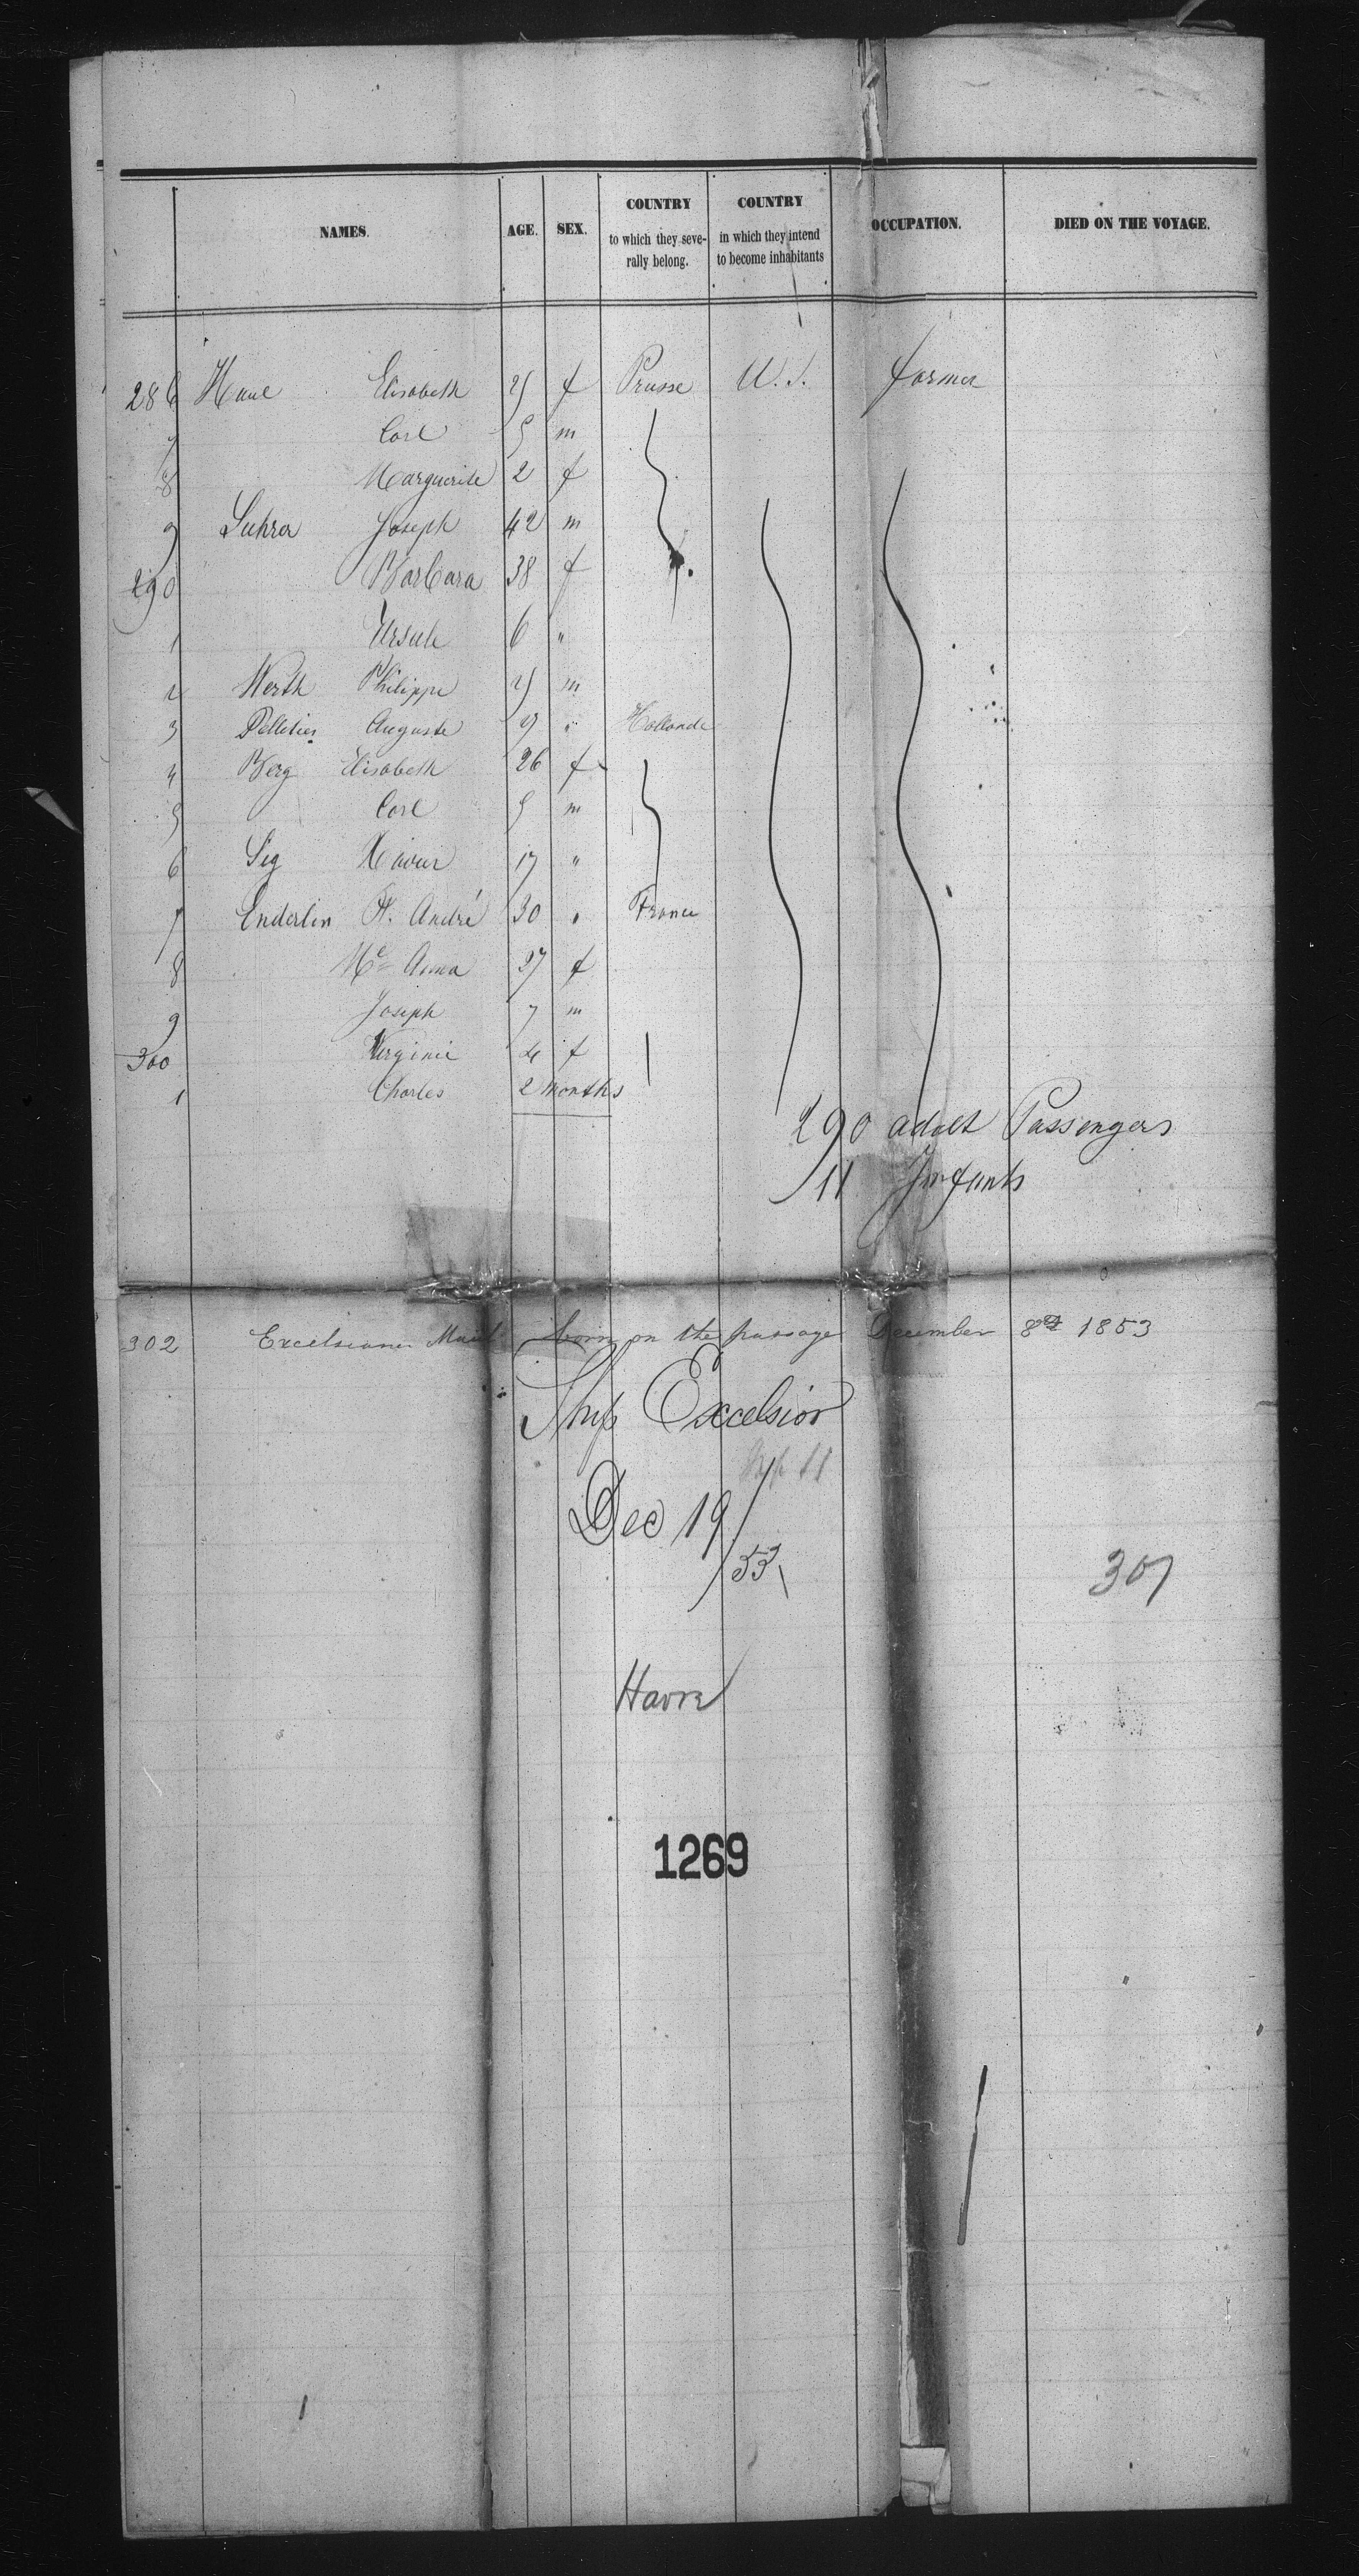 NAMES. AGE. SEX. COUNTRY to which they severally belong. COUNTRY in which they intend to become inhabitants OCCUPATION. DIED ON THE VOYAGE.
286 Haue Elisabeth f Prusse U. S. farmer
7 Carl 5 m
8 Marguerite 2 f
9 Joseph 42 m
290 Barbara 38 f
1 Ursule 6 "
2 Werth Philippe m
3 Pelletier Auguste " Hollande
4 Berg Elisabeth 26 f
5 Carl 5 m
6 Sig Xavier 17 "
7 Enderlin F. André 30 " France
8 Me Anna 27 f
9 Joseph 7 m
300 Virginie f
1 Charles 2 months
290 adult Passengers
11 Infants
302 born on the passage December 8th 1853
Ship Excelsior
Dec 19/53
301
Havre
1269